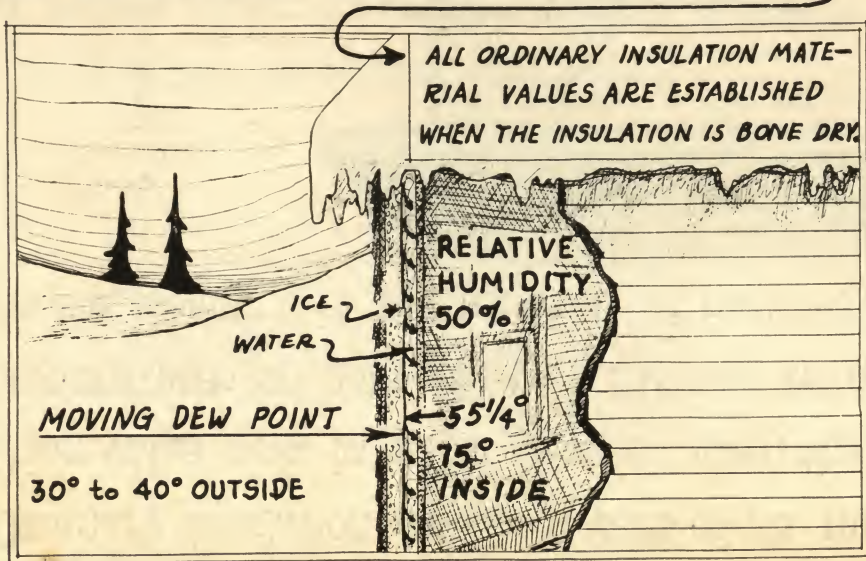 ALL ORDINARY INSULATION MATE-
RIAL VALUES ARE ESTABLISHED
WHEN THE INSULATION IS BONE DRY.
RELATIVE
HUMIDITY
50%
ICE
WATER
MOVING DEW POINT
55 1/4°
75°
INSIDE
30° to 40° OUTSIDE